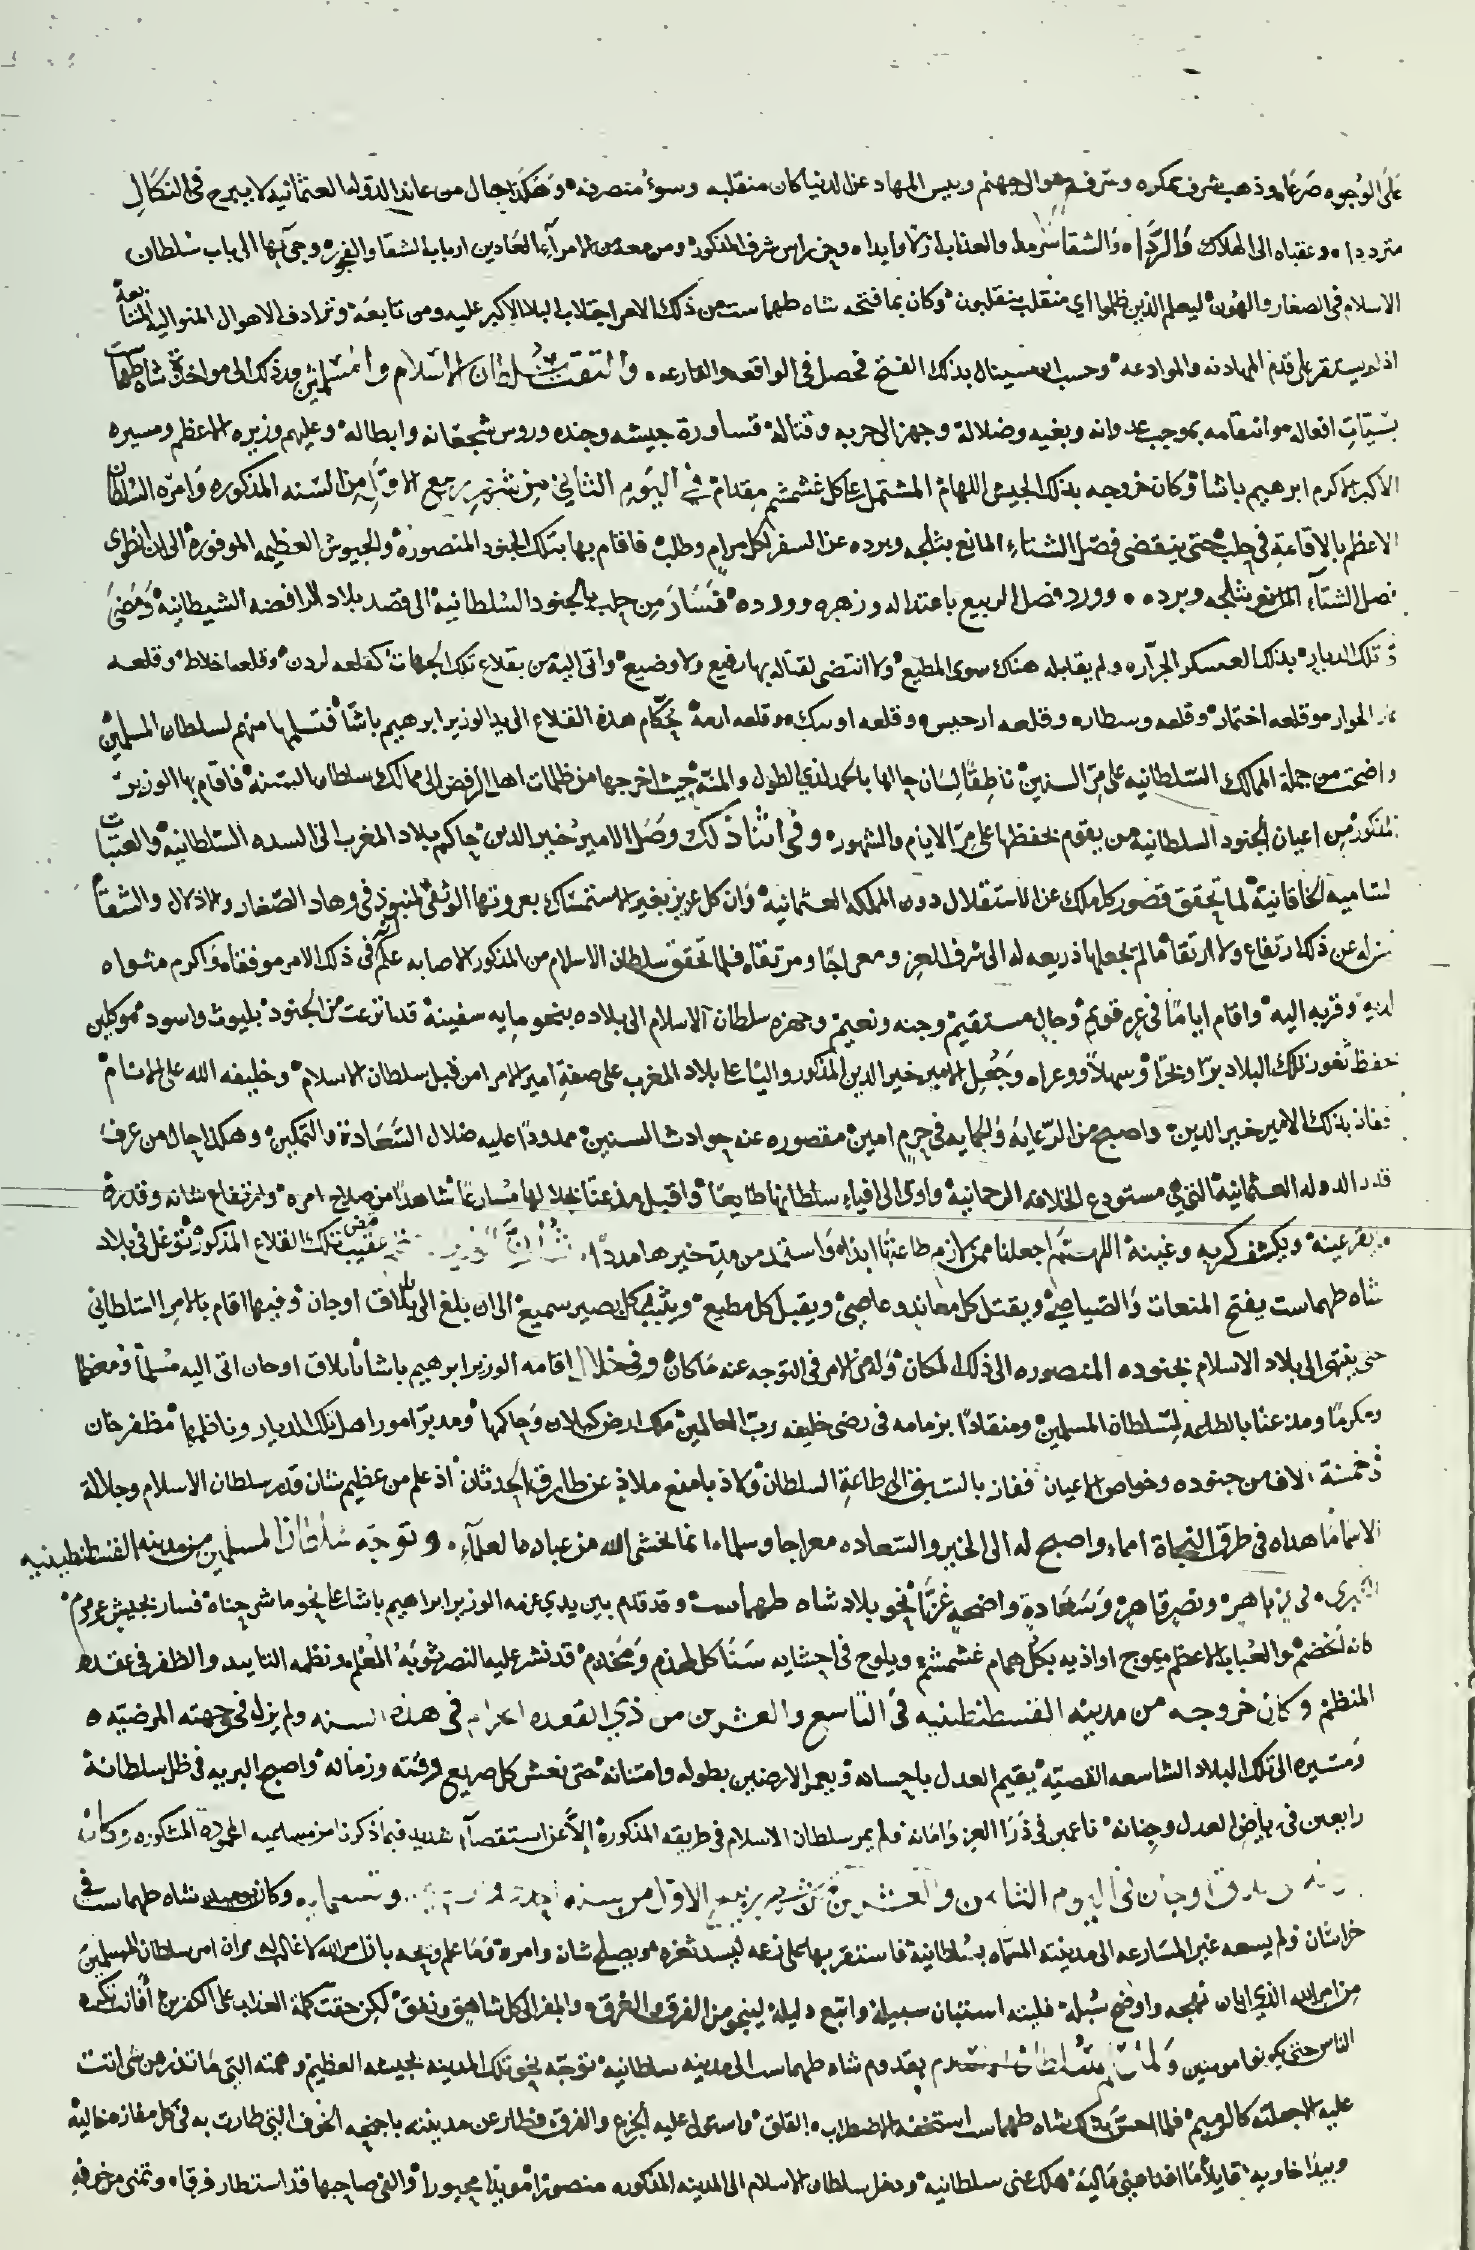 على الوجوه صرعا وذهب شرف بمكره وسرفه هو الى جهنم وبيس المهاد عن الدنيا كان منقلبه وسوء منصرفه وهكذا حال من عاند الدولة العثمانيه لا يبرح في النكال
مترددا وعقباه الى الهلاك والردا والشقا سرمدا والعذاب ازلا وابدا وحز راس شرف المذكور ومن معه من الامراء العادين ارباب الشقا والفجور وجي بها الى باب سلطان
الاسلام في الصغار والهون ليعلم الذين ظلموا اي منقلب ينقلبون وكان بما فتحه شاه طهماست من ذلك الامر اجتلاب البلا الاكبر عليه ومن تابعه وترادف الاهوال المتواليه المتتابعة
اذ لم يستقر على قدم المهادنه والموادعه وحسب ان سينال بذلك الفتح فحصل في الواقعه والقارعه والتفت سلطان الاسلام والمسلمين بعد ذلك الى مواخذة شاه طهماست
بسيات افعاله وانتقامه بموجب عدوانه وبغيه وضلاله وجهز الى حربه وقتاله قساورة جيشه وجنده وروس شجعانه وابطاله وعليهم وزيره الاعظم ومسيره
الاكبر الاكرم ابرهيم باشا وكان خروجه بذلك الجيش اللهام المشتمل على كل غشمشم مقدام في اليوم الثاني من شهر ربيع الاول من السنه المذكوره وامره السلطان
الاعظم بالاقامة في حلب حتى ينقضي فصل الشتاء المانع بثلجه وبرده عن السفر لكل مرام وطلب فاقام بها بتلك الجنود المنصوره والجيوش العظيمه الموفوره الى ان انطوى
فصل الشتاء المانع بثلجه وبرده وورد فصل الربيع باعتداله وزهره وورده فسار من حلب بالجنود السلطانيه الى قصد بلاد الرافضه الشيطانيه ومضى
تلك الديار بذلك العسكر الجراره ولم يقابله هناك سوى المطيع ولا انتضى لقتاله بها رفيع ولا وضيع واتى اليه من بقلاع تلك الجهات كقلعه لردن وقلعه اخلاط وقلعه
الهوار وقلعه اختمار وقلعه وسطاره وقلعه ارجيس وقلعه اوبيك وقلعه ارعه بحكام هذه القلاع الى يد الوزير ابرهيم باشا فتسلمها منهم لسلطان المسلمين
واضحت من جملة الممالك السلطانيه على مر السنين ناطقا لسان حالها بالحمد لذي الطول والمنه حيث اخرجها من ظلمات اهل الرفض الى ممالك سلطان السنه فاقام بها الوزير
المذكور من اعيان الجنود السلطانيه من يقوم بحفظها على مر الايام والشهور وفي اثنا ذلك وصل الامير خير الدين حاكم بلاد المغرب الى السده السلطانيه والعتبات
السامية الخاقانية لما تحقق قصور كل ملك عن الاستقلال دون المملكه العثمانيه وان كل عزيز بغير الاستمساك بعروتها الوثقى لمنبوذ في وهاد الصغار والاذلال والشقا
منزله عن ذلك ارتفاع ولا ارتقا ما لم يجعلها ذريعه له الى شرف العز ومعراجا ومرتقاه فلما تحقق سلطان الاسلام من المذكور الاصابه علم انه في ذلك الامر موفقا واكرم مثواه
لديه وقربه اليه واقام اياما في عز قويم وحال مستقيم وجنه ونعيم وجهزه سلطان الاسلام الى بلاده بنحو مايه سفينة قد اترعت من الجنود بليوث واسود موكلين
بحفظ ثغور تلك البلاد برا وبحرا وسهلا ووعراه وجعل الامير خير الدين المذكور واليا على بلاد المغرب على صفة امير الامرا من قبل سلطان الاسلام وخليفه الله على الانام
ففاز بذلك الامير خير الدين واصبح من الرعايه والحمايه في حرم امين مقصوره عنه حوادث السنين ممدودا عليه ظلال السعادة والتمكين وهكذا حال من عرف
قدر الدوله العثمانيه التي هي مستودع الخلافه الرحمانيه واوى الى افياء سلطانها طايعا واقبل مذعنا بخلالها مسارعا شاهدا من صلاح امره وارتفاع شانه وقدره
ما يقر عينه ويكشف كربه وغبنه اللهم اجعلنا ممن لازم طاعتها ابدا واستمد من مد خيرها مددا ثم ان الوزير عقيب تلك القلاع المذكوره توغل في بلاد
شاه طهماست يفتح المنعات والصياصي ويقتل كل معاند وعاصي ويقبل كل مطيع ويثيب كل بصير سميع الى ان بلغ الى يلاق اوجان وفيها اقام بالامر السلطاني
حتى ينتهي الى بلاد الاسلام بجنوده المنصوره الى ذلك المكان وامضى الامر في التوجه عنه ما كان وفي خلال اقامه الوزير ابرهيم باشا بايلاق اوجان اتى اليه مسلما ومعظما
ومكرما ومذعنا بالطاعه لسلطان المسلمين ومنقادا بزمامه في رضى خليفه رب العالمين ملك ارض كيلان وحاكمها ومدبر امور اهل تلك الديار وناظمها مظفر خان
في خمسة الاف من جنوده وخواص الاعيان ففاز بالسبق الى طاعة السلطان ولاذ بامنع ملاذ عن طارقة الحدثان اذ علم من عظيم شان وقدر سلطان الاسلام وجلالة
الاسما ما هداه في طرق النجاة امما واصبح له الى الخير والسعاده معراجا وسلما انما يخشى الله من عباده العلماء وتوجه سلطان المسلمين من مدينه القسطنطينيه
الكبرى في عز باهر ونصر قاهر وسعادة واضحة غرا نحو بلاد شاه طهماست وقد قدم بين يدي عزمه الوزير ابراهيم باشا على نحو ما شرحناه فسار بجيش عرمرم
كانه لخضم والعباب الاعظم يموج اواذيه بكل همام غشمشم ويلوح في احشايه سنا كل لهذم ومخدم قد نشر عليه النصر ثوبه المعلم ونظمه التاييد والظفر في عقده
المنظم وكان خروجه من مدينه القسطنطينيه في التاسع والعشرين من ذي القعده الحرام في هذه السنه ولم يزل في وجهته المرضيه
ومسيره الى تلك البلاد الشاسعه القصيه يقيم العدل باحسانه ويعم الارضين بطوله وامتنانه حتى نعش كل صريع فرقته وزمانه واصبح البريه في ظل سلطانه
رابعين في رياض العدل وجنانه ناعمين في ذرا العز وامانه ولم يمر سلطان الاسلام في طريقه المذكورة الا عن استقصاء شديد فيما ذكرنا من مساعيه المحموده المشكوره وكان
اوجان في اليوم الثامن والعشرين من شهر ربيع الاول من سنه احدى وتسعمايه وكان يوميذ شاه طهماست في
خراسان فلم يسعه غير المسارعه الى مدينته المسماه بسلطانية فاستقر بها على زعمه ليسد ثغره ويصلح شانه وامره وما علم ويحه بان امر الله لا غالب له وان امر سلطان المسلمين
من امر الله الذي ابان نهجه واوضح سبله فليته استبان سبيله واتبع دليله لينجو من الفرق والغرق والمفر الى كل شاهق ونفق لكن حقت كلمة العذاب على الكفرين افانت تكره
الناس حتى يكونوا مومنين ولما علم سلطان الاسلام بقدوم شاه طهماست الى مدينه سلطانيه توجه نحو تلك المدينه بجيشه العظيم وهمته التي ما تذر من شي اتت
عليه الا جعلته كالرميم فلما احس بذلك شاه طهماست استخفه الاضطراب والقلق واستولى عليه الجزع والفرق فطار عن مدينته باجنحه الخوف التي طارت به في كل مفازه خاليه
وبيدا خاويه قايلا ما اغنى عني ماليه هلك عني سلطانيه ودخل سلطان الاسلام الى المدينه المذكوره منصورا مويدا محبورا والفى صاحبها قد استطار فرقاه وتمنى من خوفه